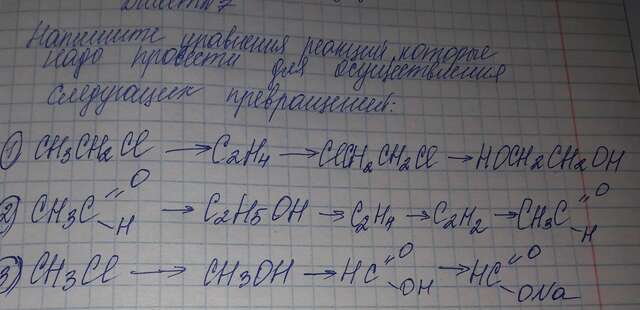 Напишите уравнения реакций, которые
надо провести для осуществления
следующих превращений:
1) CH3CH2Cl → C2H4 → ClCH2CH2Cl → HOCH2CH2OH
2) CH3C=O-H → C2H5OH → C2H4 → C2H2 → CH3C=O-H
3) CH3Cl → CH3OH → HC=O-OH → HC=O-ONa